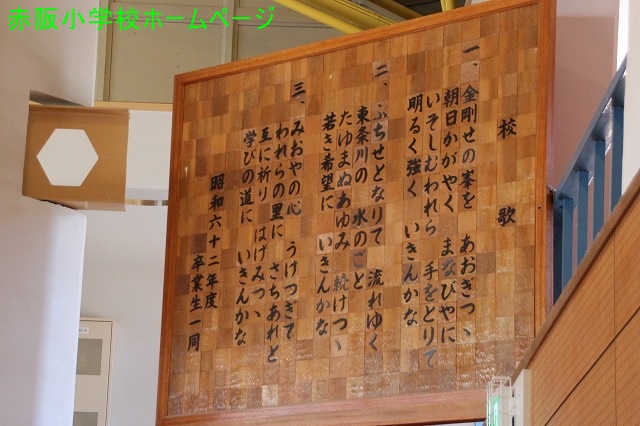 赤阪小学校ホームページ
校歌
一、金剛せの峯を あおぎつゝ
朝日かがやく まなびやに
いそしむわれら 手をとりて
明るく強く いきんかな
二、ふちせとなりて 流れゆく
東条川の 水のごと
たゆまぬあゆみ 続けつゝ
若き希望に いきんかな
三、みおやの心 うけつぎて
われらの里に さちあれと
互に祈り はげみつゝ
学びの道に いきんかな
昭和六十二年度
卒業生一同